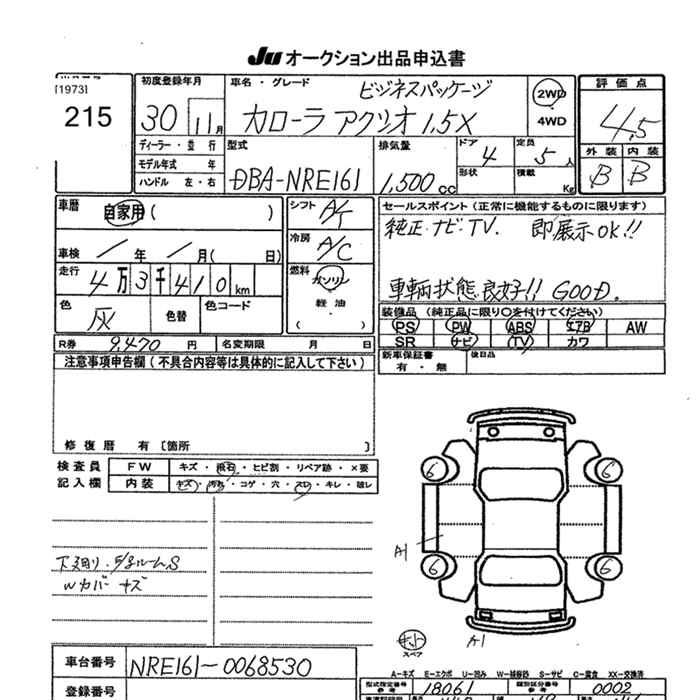 JU オークション出品申込書
[1973]
215
初度登録年月
30 11月
車名・グレード
ビジネスパッケージ
カローラ アクシオ 1.5X
2WD
4WD
評価点
4.5
外装 内装
B B
ディーラー・並行
モデル年式 年
ハンドル 左・右
型式
DBA-NRE161
排気量
1,500 cc
ドア
4
定員
5人
形状
積載
Kg
車歴
自家用( )
車検 / 年 / 月( 日)
走行
4万3千410km
色
灰
色替
色コード
シフト
A/T
冷房
A/C
燃料
ガソリン
軽油
( )
セールスポイント(正常に機能するものに限ります)
純正ナビTV. 即展示OK!!
車輌状態良好!! GOOD.
装備品(純正品に限り〇を付けてください)
PS PW ABS エアB AW
SR ナビ TV カワ
新車保証書
有・無
後日品
R券 9,470 円 名変期限 月 日
注意事項申告欄(不具合内容等は具体的に記入して下さい)
修復歴 有〔箇所 〕
検査員
記入欄
FW キズ・飛石・ヒビ割・リペア跡・×要
内装 キズ・汚れ・コゲ・穴・スレ・キレ・破レ
Wカバーキズ
6 6
A1
6 6
スペア
A1
A-キズ E-エクボ U-凹み W-補修跡 S-サビ C-腐食 XX-交換済
車台番号 NRE161-0068530
登録番号
型式指定番号
参考
18061
類別区分番号
参考
0002